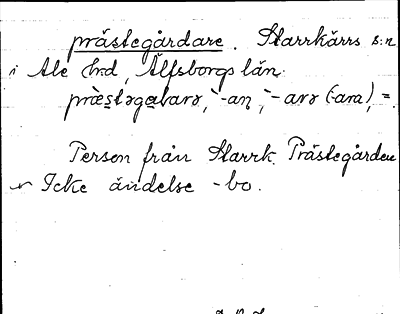 prästegårdare. Starrkärrs s:n
i Ale hrd, Älfsborgs län.
-an, -arə (-ara), =.
Person från Starrk. Prästegården
Icke ändelse -bo.